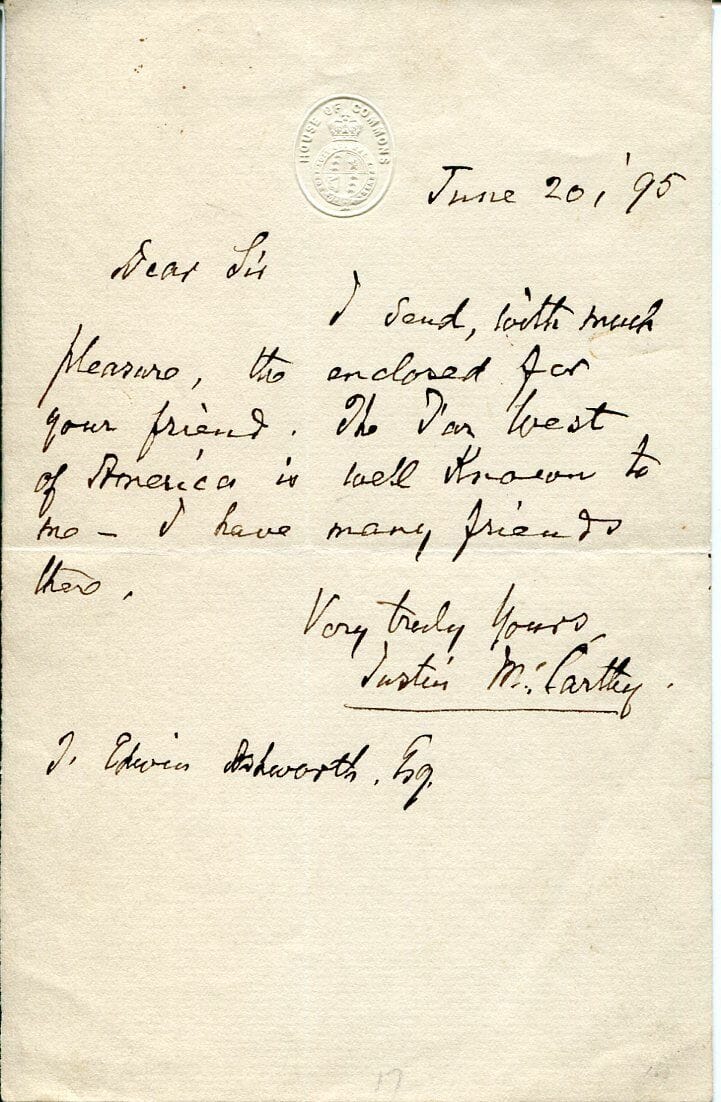 HOUSE OF COMMONS
June 20, '95
Dear Sir
I send, with much
pleasure, the enclosed for
your friend. The Far West
of America is well known to
me – I have many friends
there.
Very truly yours
Justin McCarthy.
Edwin Ashworth, Esq.
17